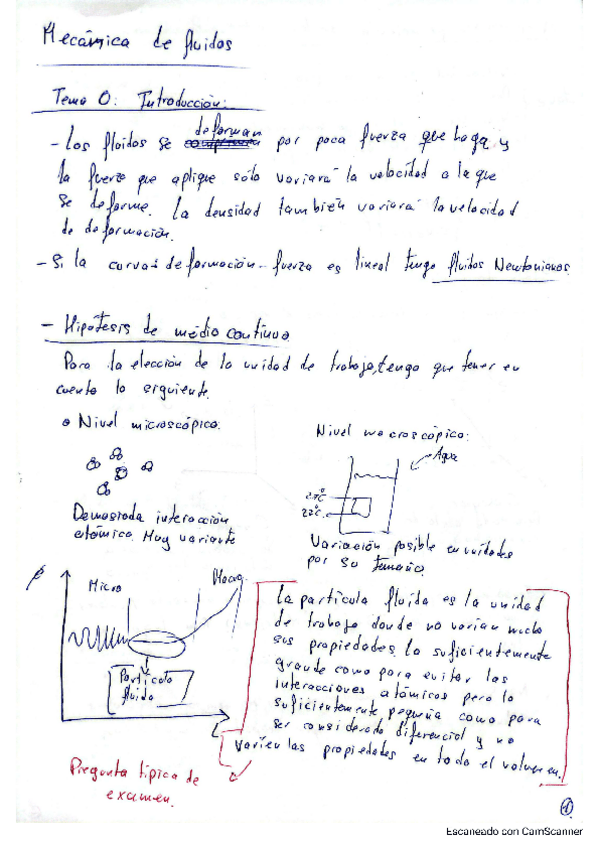 Mecánica de fluidos
Tema 0: Introducción:
- Los fluidos se deforman por poca fuerza que haga y
la fuerza que aplique sólo variará la velocidad a la que
se deforme. La densidad también variará la velocidad
de deformación.
- Si la curva deformación-fuerza es lineal tengo fluidos Newtonianos.
- Hipótesis de medio continuo
Para la elección de la unidad de trabajo, tengo que tener en
cuenta lo siguiente.
Nivel microscópico:
Nivel macroscópico:
Agua
22°C
Demasiada interacción
atómica. Muy variante
Variación posible en unidades
por su tamaño.
ρ
Micro
Macro
Partícula
fluida
L
La partícula fluida es la unidad
de trabajo donde no varían mucho
sus propiedades, lo suficientemente
grande como para evitar las
interacciones atómicas pero lo
suficientemente pequeña como para
ser considerada diferencial y no
varíen las propiedades en todo el volumen.
Pregunta típica de
examen.
1
Escaneado con CamScanner